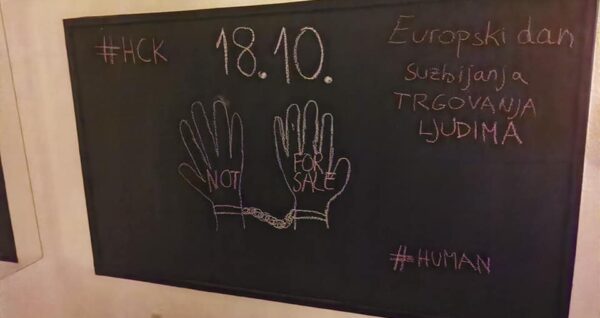 #HCK
18.10.
Europski dan
suzbijanja
TRGOVANJA
LJUDIMA
NOT
FOR
SALE
#HUMAN